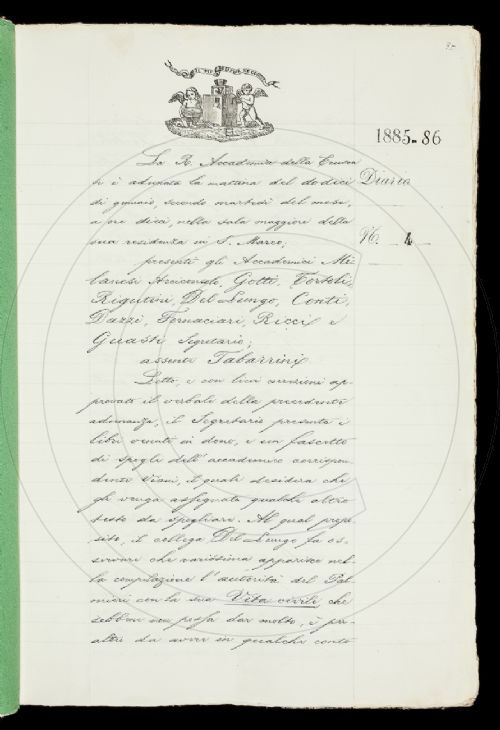 IL PIÙ BEL FIOR NE COGLIE
1885-86
Diario
N.º 4
La R. Accademia della Crusca
si è adunata la mattina del dodici
di gennaio, secondo martedì del mese,
a ore dieci, nella sala maggiore della
sua residenza in S. Marco;
presenti gli Accademici Mi-
lanesi Arciconsolo, Gotti, Tortoli,
Rigutini, Del Lungo, Conti,
Dazzi, Fornaciari, Ricci e
Guasti Segretario;
assente Tabarrini.
Letto, e con lievi correzioni ap-
provato il verbale della precedente
adunanza, il Segretario presenta i
libri venuti in dono, e un fascetto
di spogli dell'accademico corrispon-
dente Viani, il quale desidera che
gli venga assegnato qualche altro
testo da spogliare. Al qual propo-
sito, il collega Del Lungo fa os-
servare che rarissima apparisce nel-
la compilazione l'autorità del Pal-
mieri con la sua Vita civile che
sebben non possa dar molto, è per
altro da avere in qualche conto